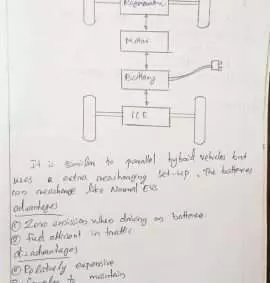 Motor
Battery
ICE
It is similar to parallel hybrid vehicles but
uses a extra recharging set-up. The batteries
can recharge like Normal EVs
advantages
① Zero emission when driving on batteries.
② Fuel efficient in traffic
disadvantages
① Relatively expensive
② Complex to maintain